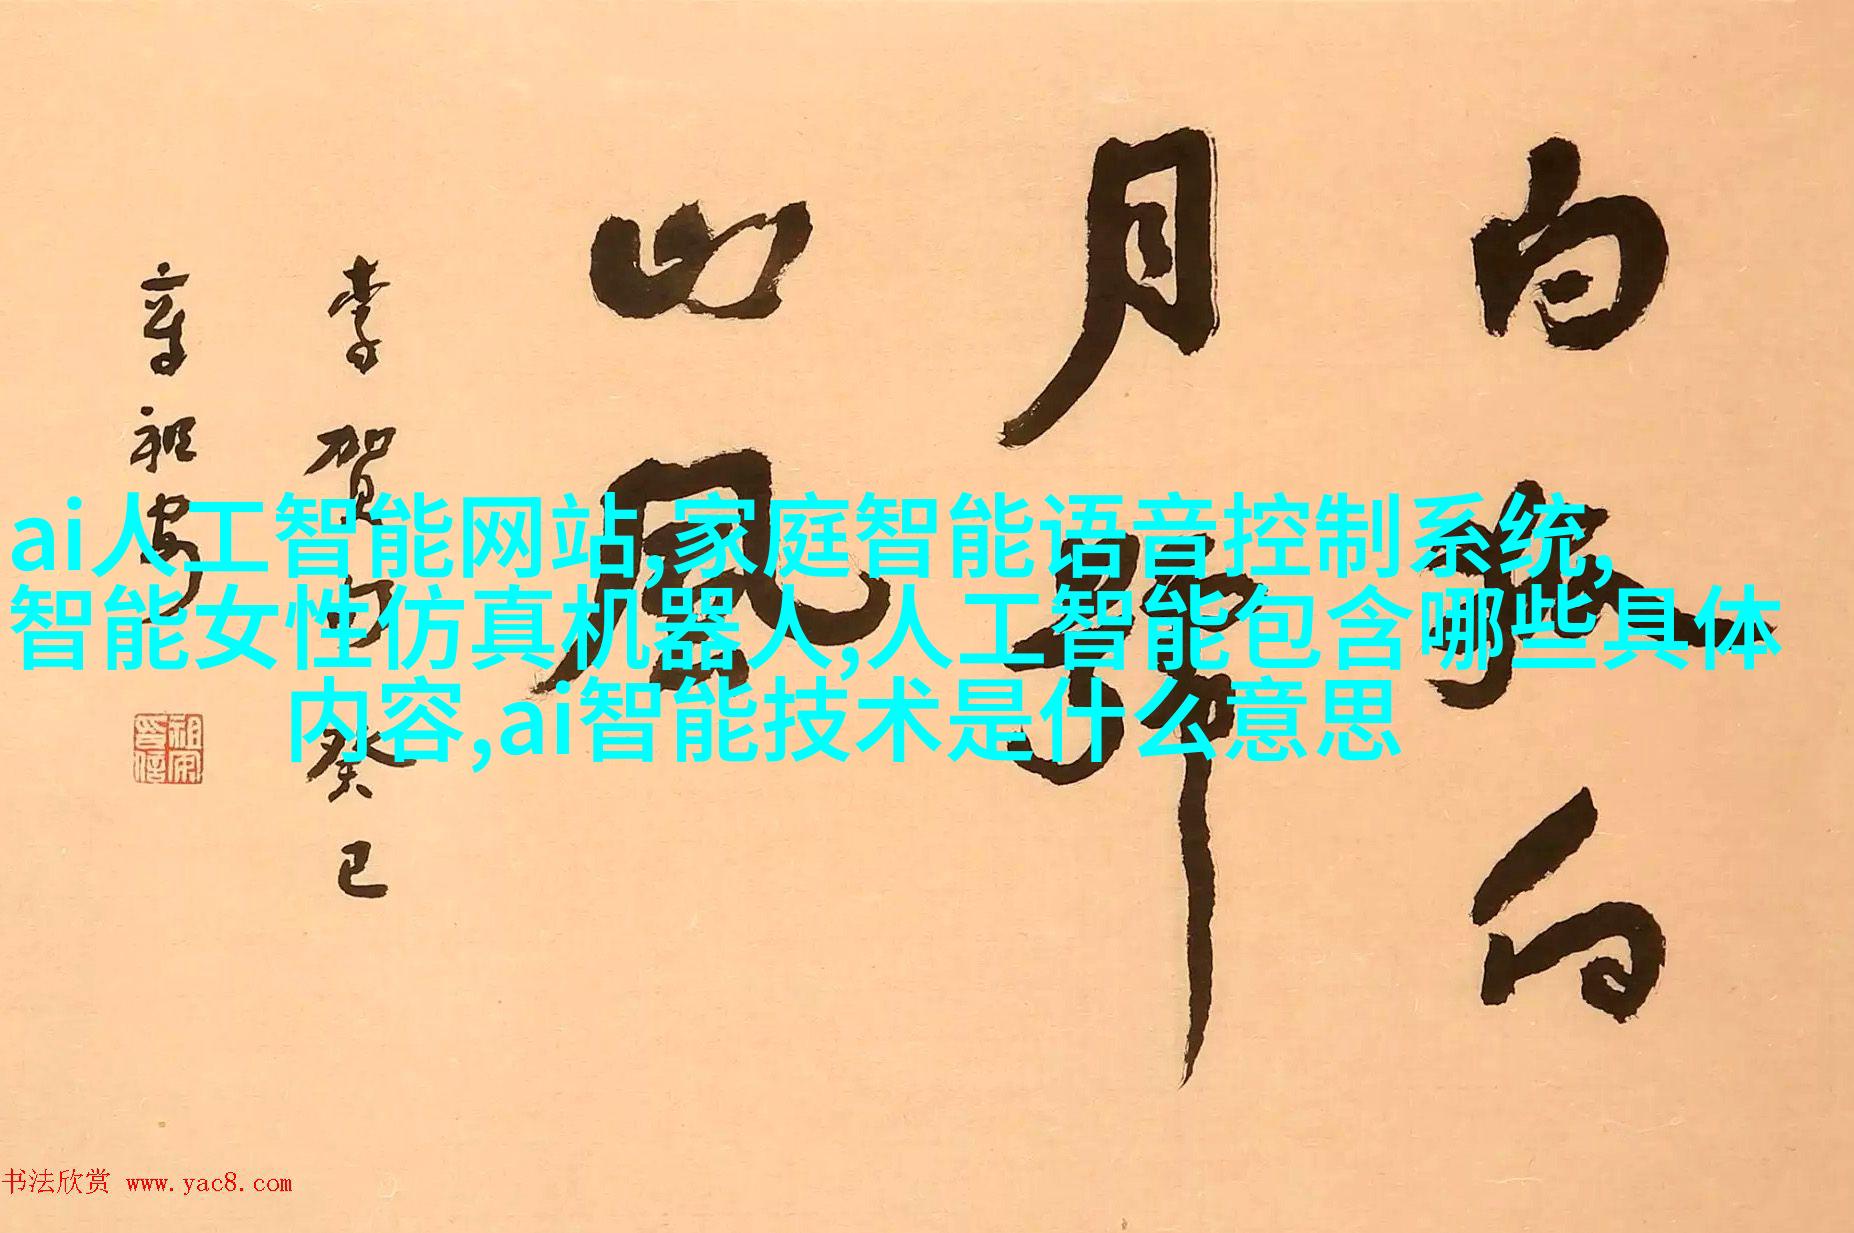 白狐向
月號
山風
李賀句癸巳
章祖安
祖安印信
ai人工智能网站,家庭智能语音控制系统,
智能女性仿真机器人,人工智能包含哪些具体
内容,ai智能技术是什么意思
书法欣赏 www.yac8.com